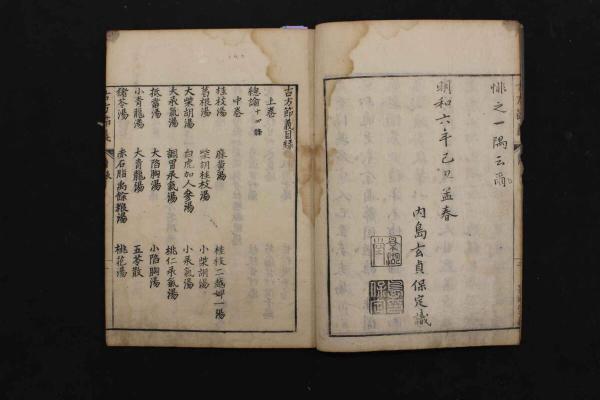 悱之一隅云爾
明和六年己丑孟春
内島玄貞保定識
古方節義目録
上巻
總論
中巻
桂枝湯 麻黄湯 桂枝二越婢一湯
葛根湯 柴胡桂枝湯 小柴胡湯
大柴胡湯 白虎加人參湯 小承氣湯
大承氣湯 調胃承氣湯 桃仁承氣湯
抵當湯 大陷胸湯 小陷胸湯
小青龍湯 大青龍湯 五苓散
猪苓湯 赤石脂禹餘粮湯 桃花湯